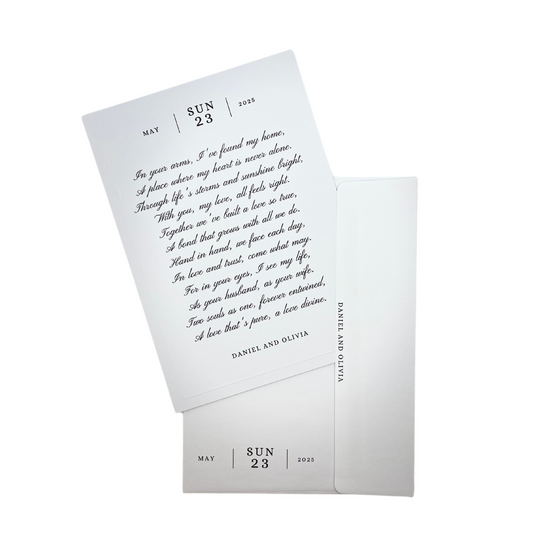 MAY | SUN 23 | 2025
In your arms, I've found my home,
A place where my heart is never alone.
Through life's storms and sunshine bright,
With you, my love, all feels right.
Together we've built a love so true,
A bond that grows with all we do.
Hand in hand, we face each day,
In love and trust, come what may.
For in your eyes, I see my life,
As your husband, as your wife.
Two souls as one, forever entwined,
A love that's pure, a love divine.
DANIEL AND OLIVIA
DANIEL AND OLIVIA
MAY | SUN 23 | 2025